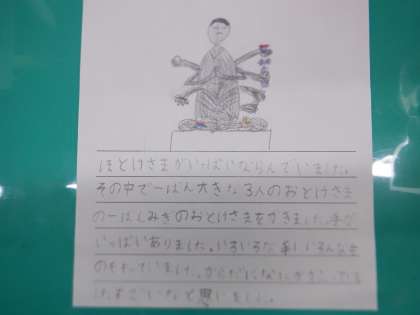 ほとけさまがいっぱいならんでいました。
その中で一ばん大きな3人のおとけさま
の一ばんみぎのおとけさまをかきました。手が
いっぱいありました。いろいろな手にいろんなも
のもっていました。からだになにか
はすごいなと思いました。